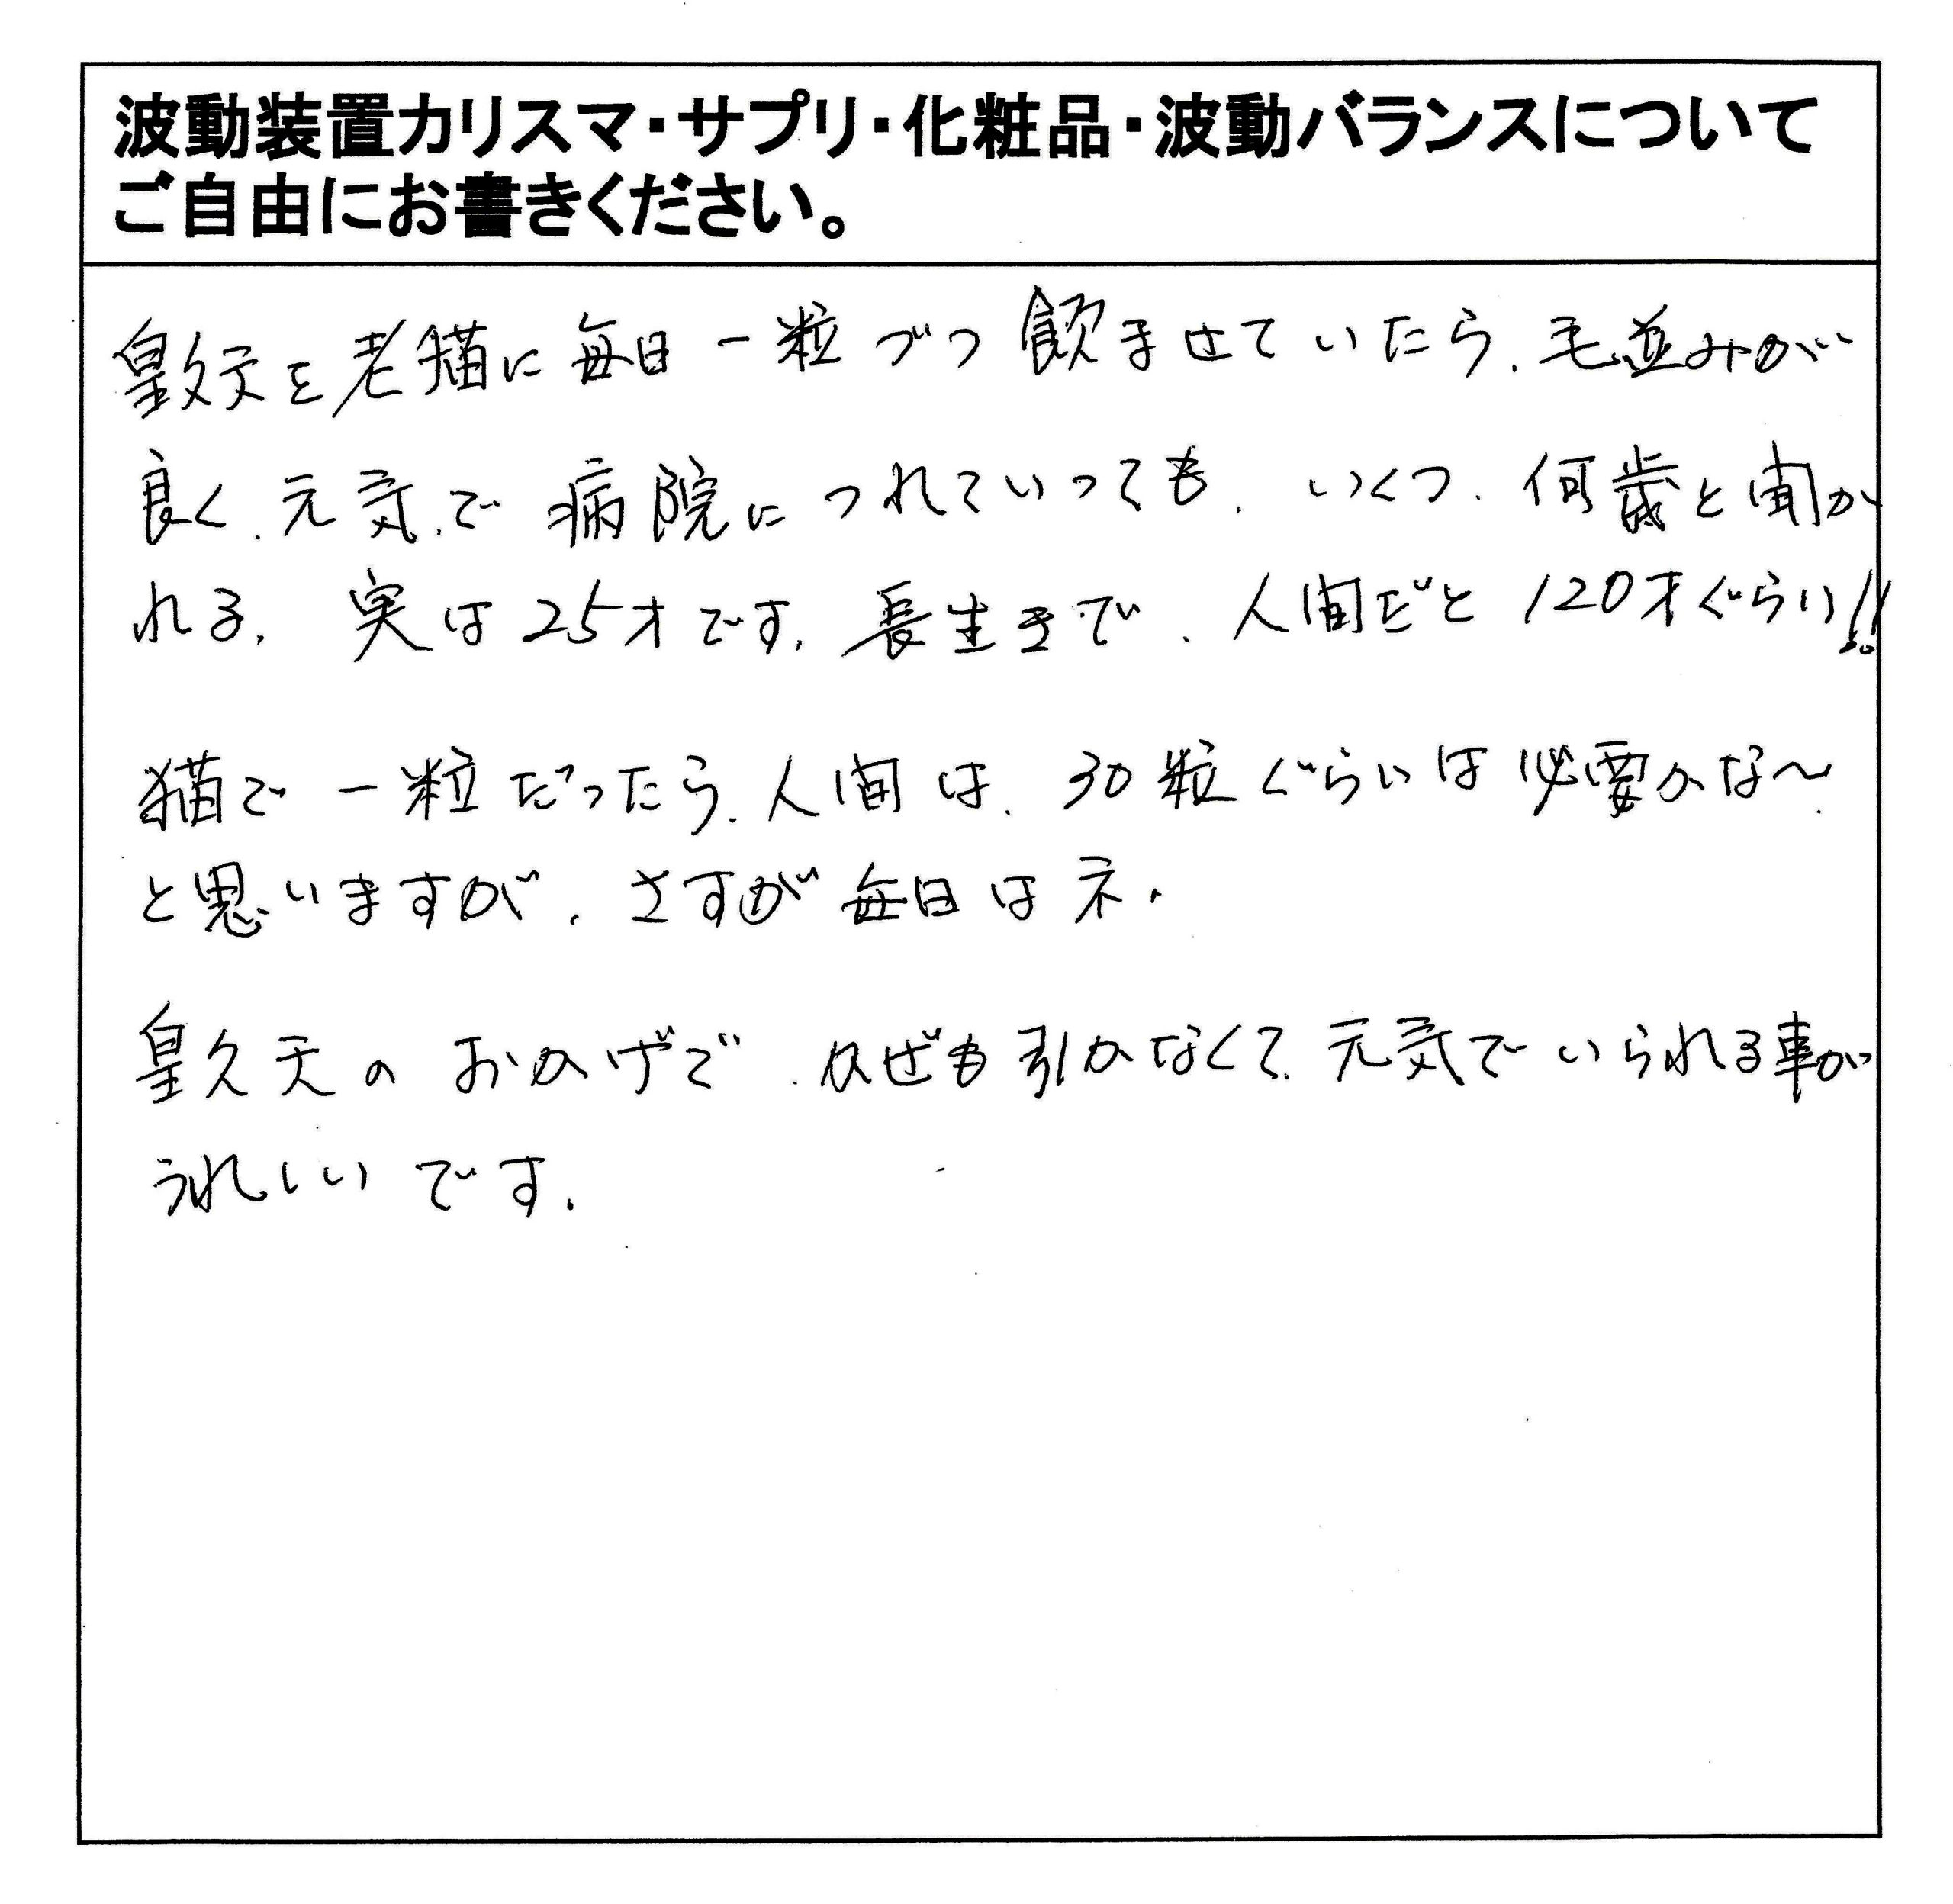 波動装置カリスマ・サプリ・化粧品・波動バランスについて
ご自由にお書きください。
皇久天を老猫に毎日一粒づつ飲ませていたら、毛並みが
良く、元気で病院につれていっても、いくつ、何歳と聞か
れる。実は25才です。長生きで、人間だと120才ぐらい!!
猫で一粒だったら、人間は、30粒ぐらいは必要かな〜
と思いますが、さすが毎日はネ。
皇久天のおかげで、かぜも引かなくて、元気でいられる事が
うれしいです。